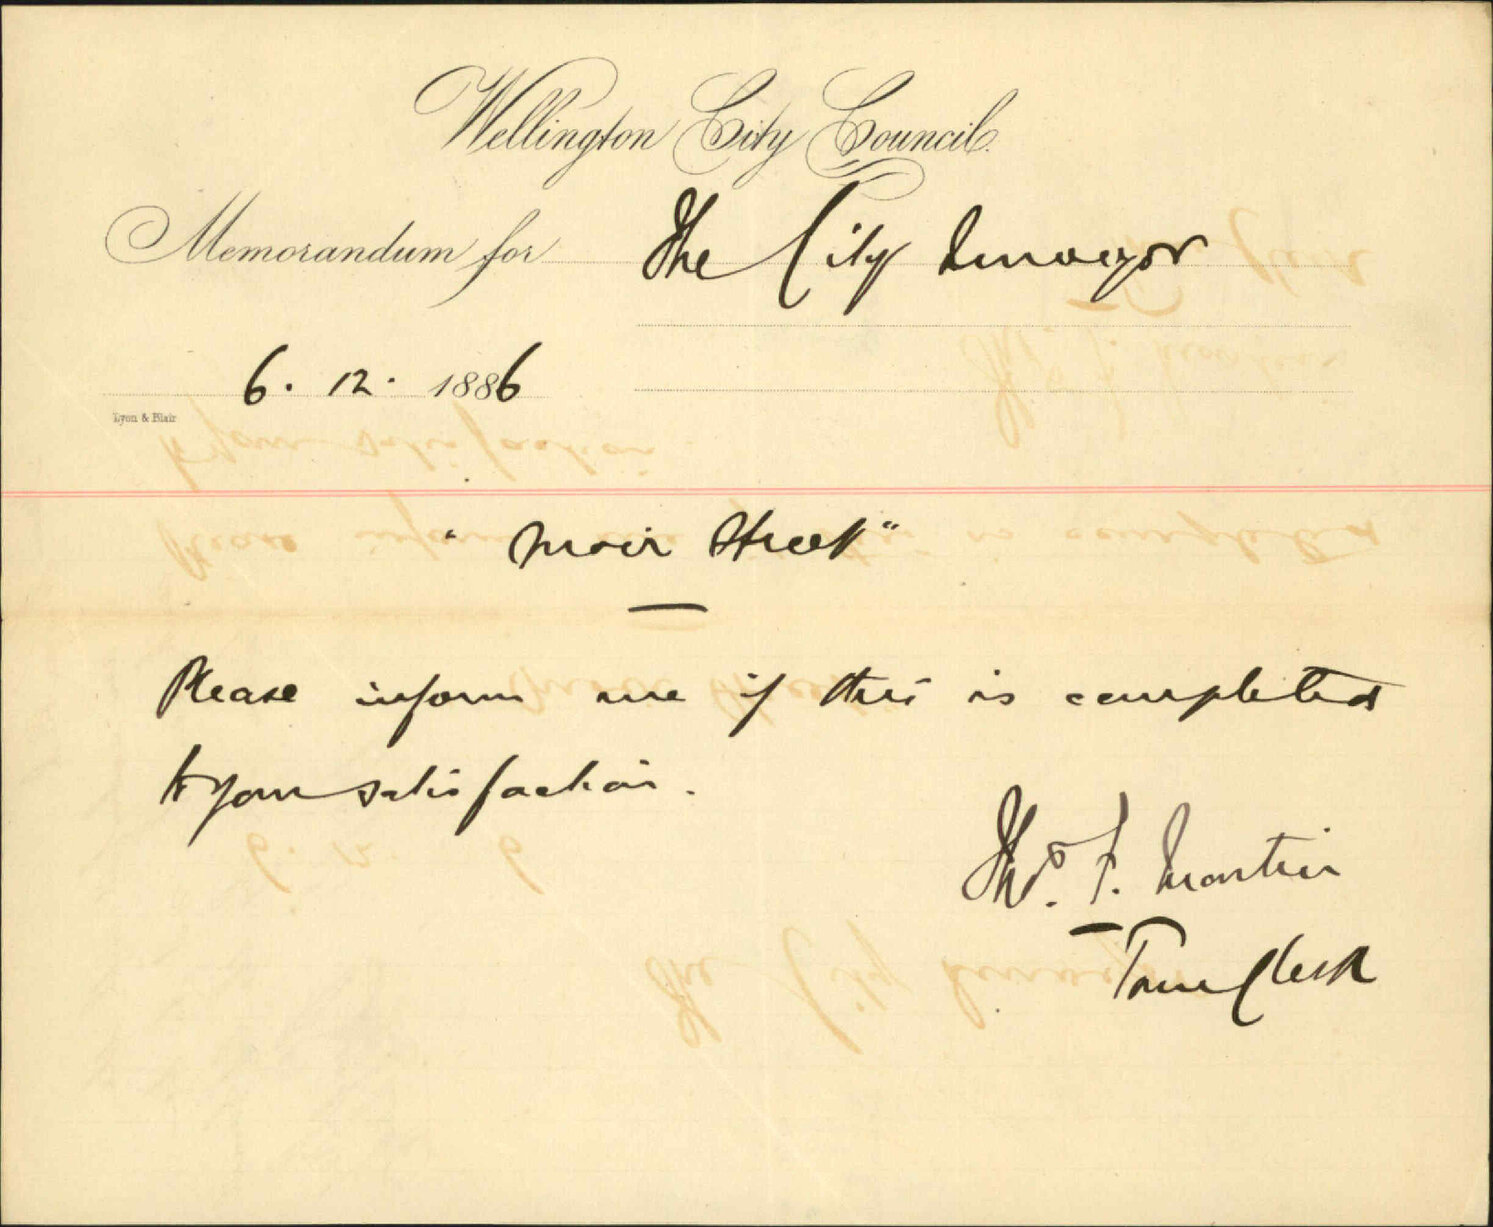 Wellington City Council.
Memorandum for The City Surveyor
6. 12. 1886
Lyon & Blair
"Moir Street"
Please inform me if this is completed
to your satisfaction.
Thos. F. Martin
Town Clerk